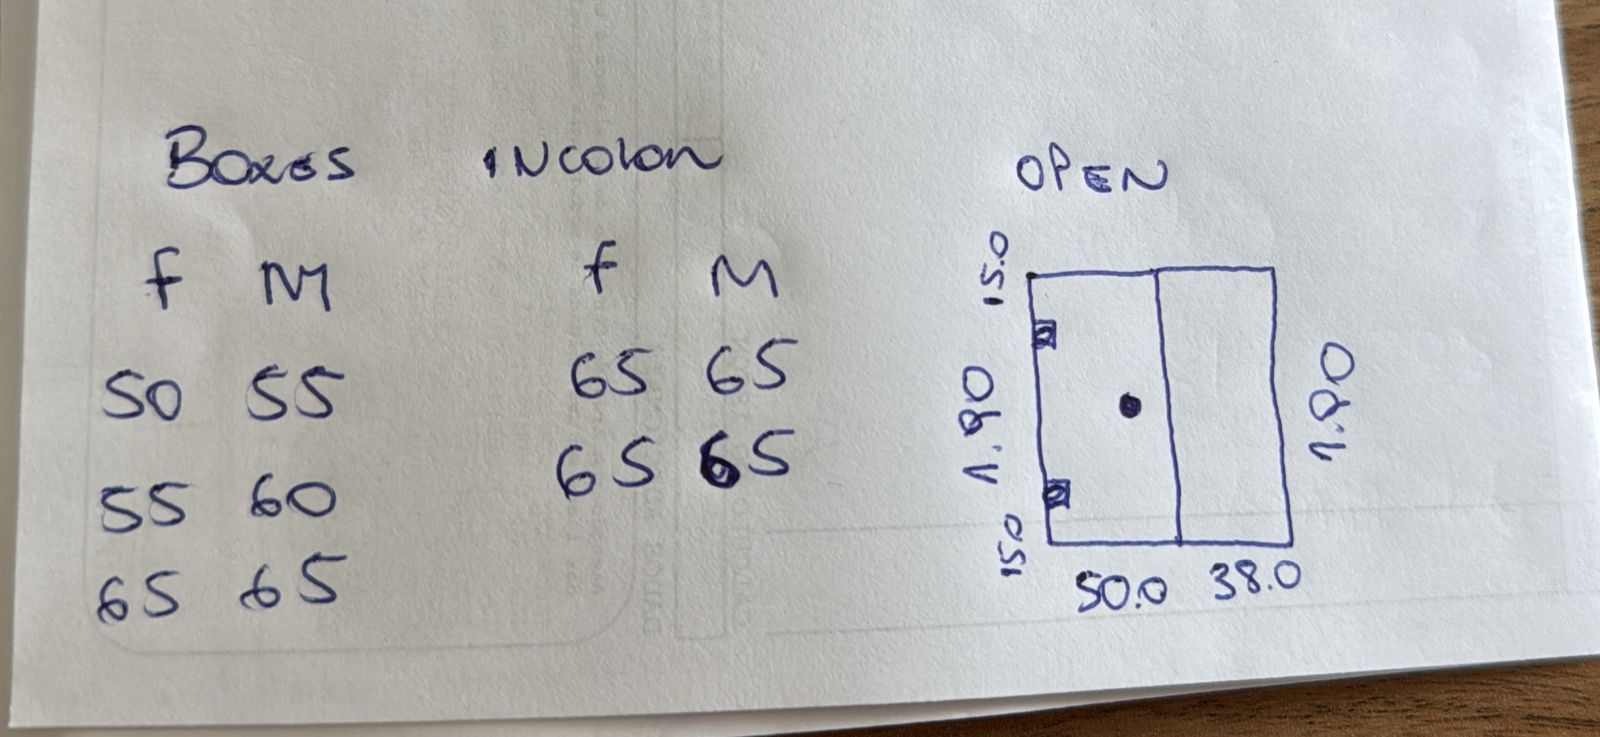 Boxes
f M
50 55
55 60
65 65
INcolon
f M
65 65
65 65
OPEN
15.0
1.90
15.0
50.0 38.0
1.90